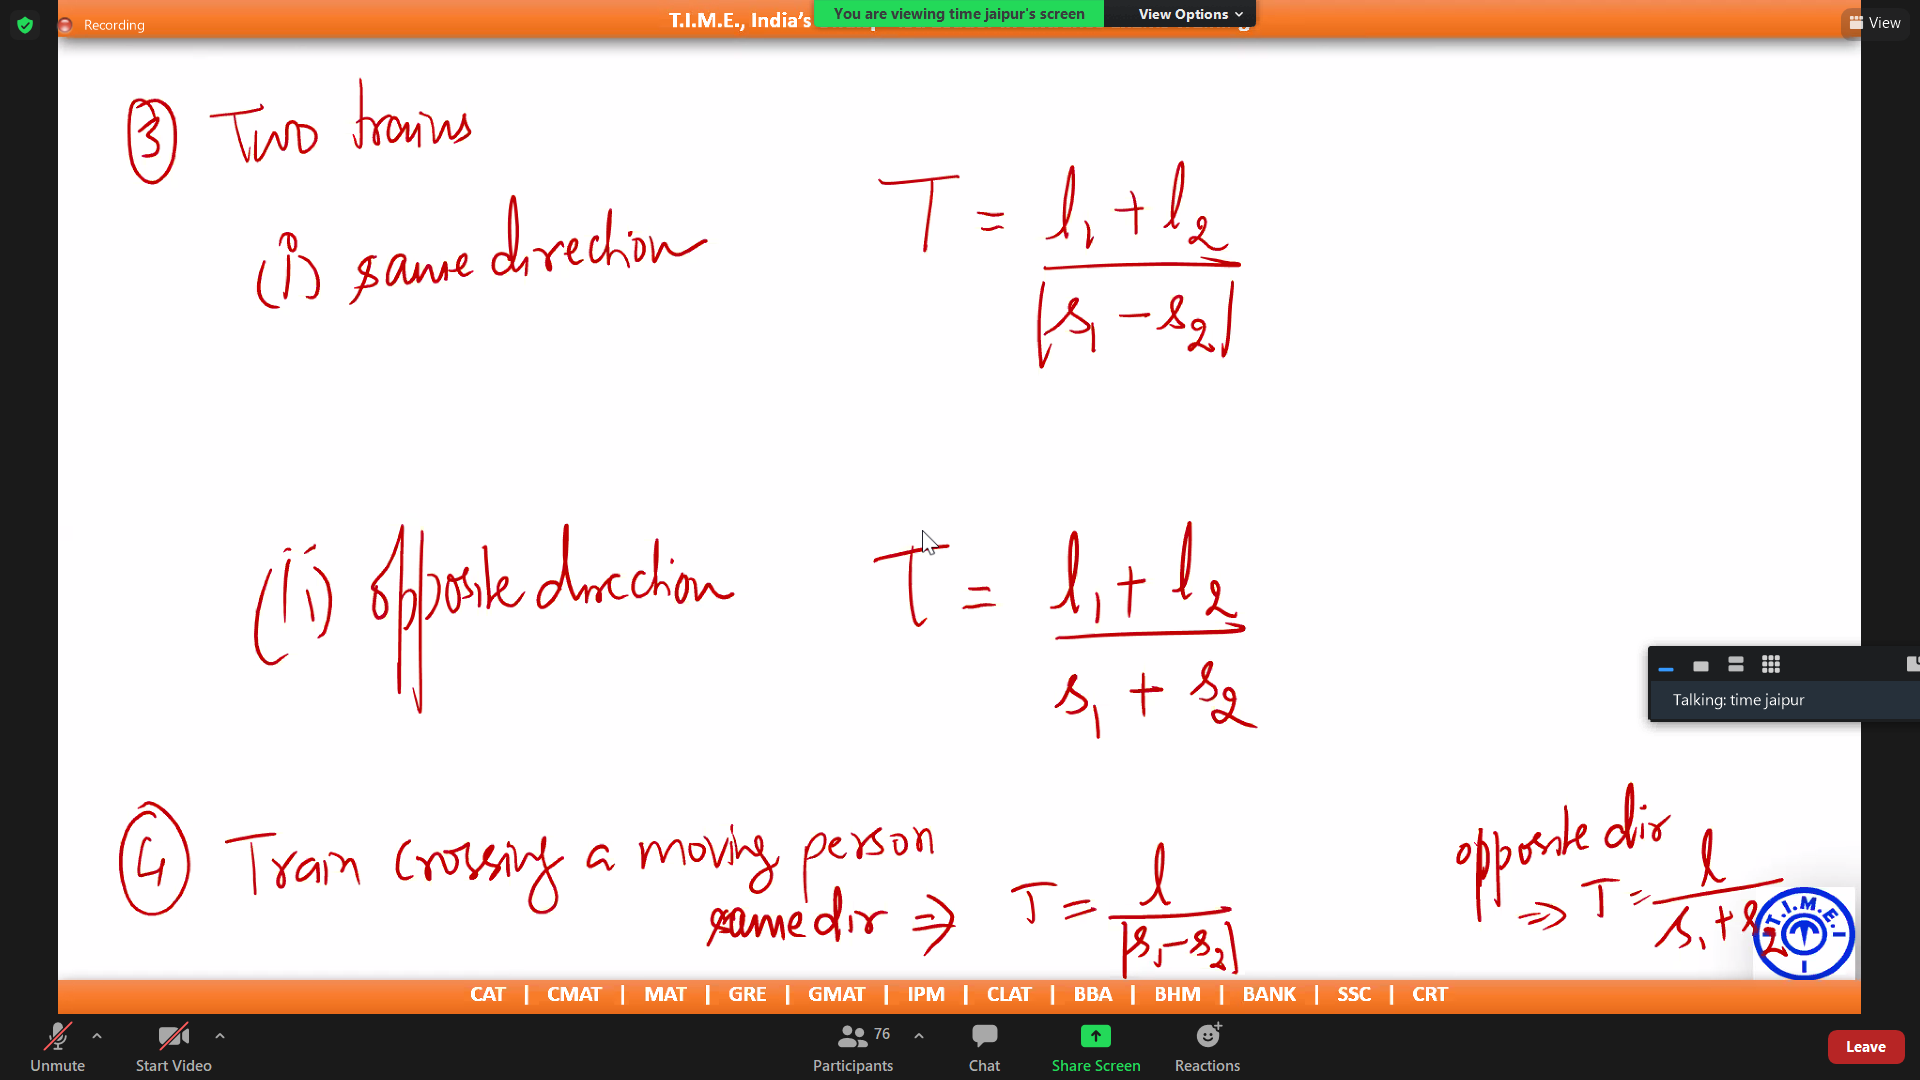 Recording
T.I.M.E., India's
You are viewing time jaipur's screen
View Options
View
③ Two trains
(i) same direction
T = l₁ + l₂ / |s₁ − s₂|
(ii) opposite direction
T = l₁ + l₂ / s₁ + s₂
Talking: time jaipur
④ Train crossing a moving person
same dir ⇒ T = l / |s₁ − s₂|
opposite dir
⇒ T = l / s₁ + s₂
T.I.M.E.
CAT | CMAT | MAT | GRE | GMAT | IPM | CLAT | BBA | BHM | BANK | SSC | CRT
Unmute
Start Video
76
Participants
Chat
Share Screen
Reactions
Leave